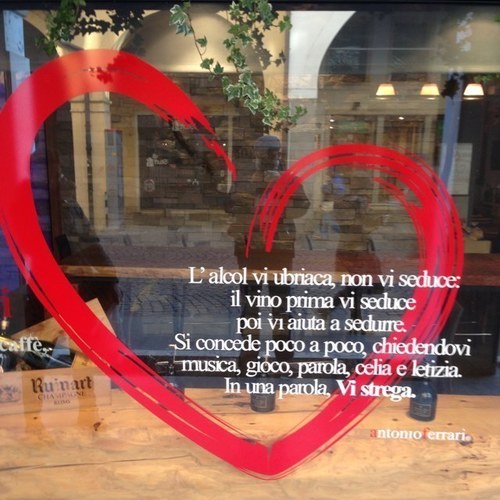 L' alcol vi ubriaca, non vi seduce:
il vino prima vi seduce
poi vi aiuta a sedurre.
-Si concede poco a poco, chiedendovi
musica, gioco, parola, celia e letizia.
In una parola, Vi strega.
antonioferrari
caffè,
Ruinart
CHAMPAGNE
REIMS